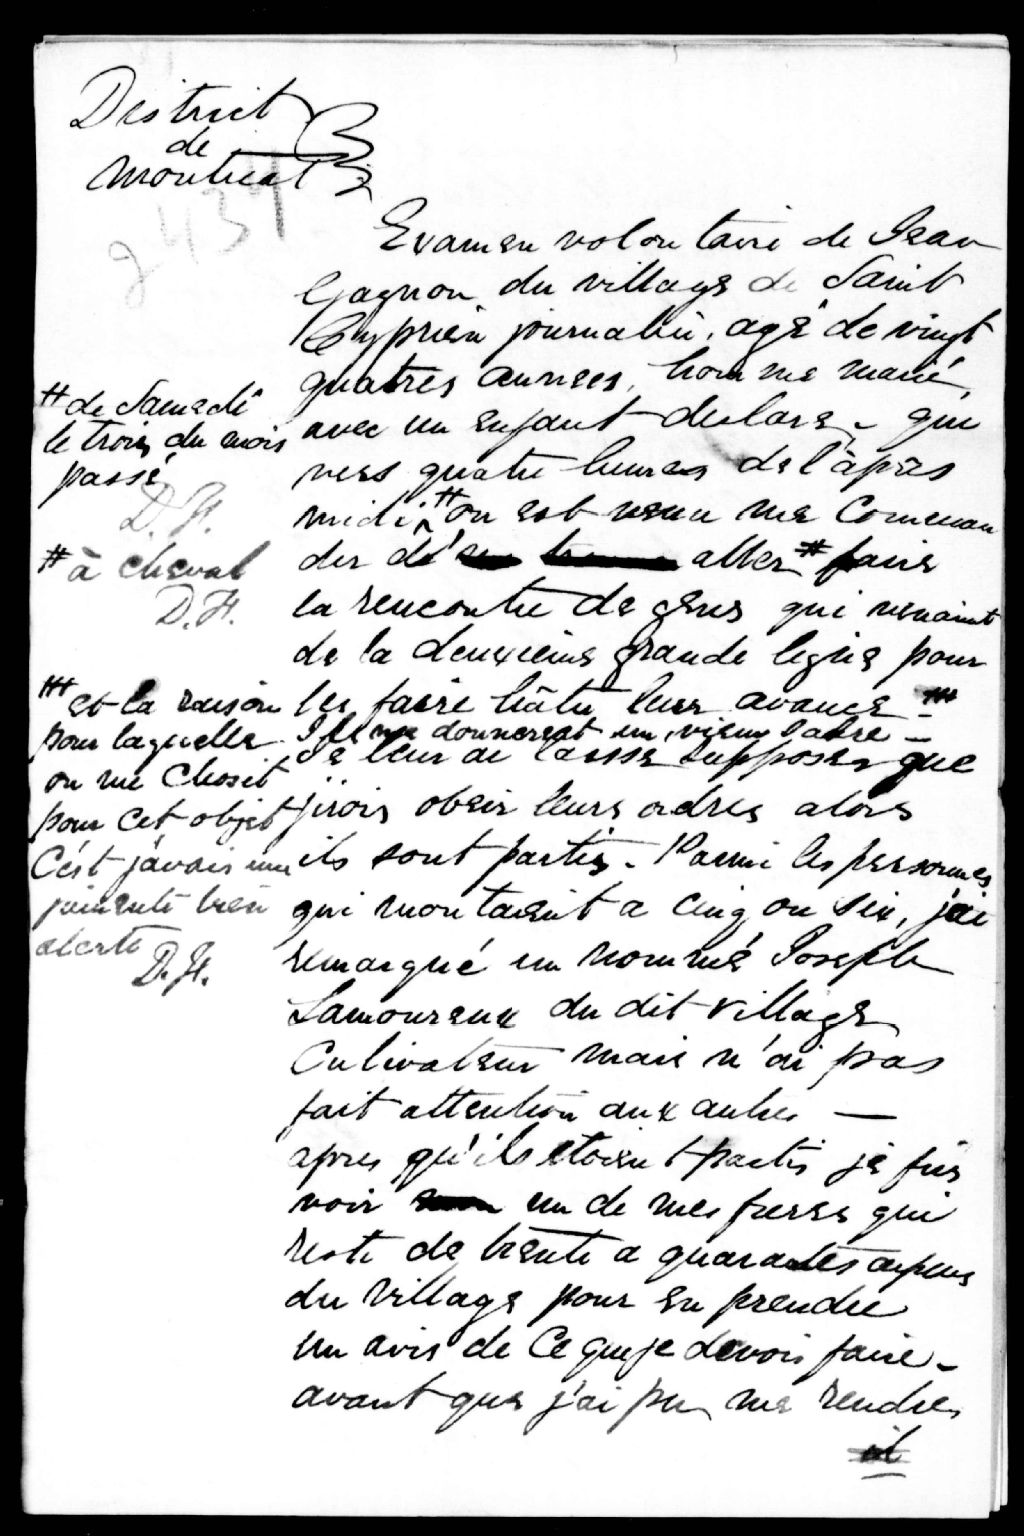 District
de
Montreal
2437
Examen volontaire de Jean
Gagnon du village de Saint
Cyprien journalier, agé de vingt
quatres annees, homme marié,
avec un enfant declare - que
vers quatre heures de l'àpres
midi, # on est venu me comman
der de aller # faire
la rencontre de gens qui venaint
de la deuxieme grande ligne pour
les faire hâter leur avance - ##
Ils me donnerent un vieux sabre -
Je leur ai laisse supposer que
j'irois obeir leurs ordres alors
ils sont partis - Parmi les personnes
qui montaient a cinq ou six, j'ai
remarqué un nommé Joseph
Lamoureux du dit village
Cultivateur mais n'ai pas
fait attention aux autres —
apres qu'ils etoient partis je fus
voir un de mes freres qui
reste de trente a quarantes arpens
du village pour en prendre
un avis de ce que je devois faire -
avant que j'ai pu me rendre
il
# de Samedi
le trois du mois
passé
D. H.
# à cheval
D. H.
## et la raison
pour laquelle
on me choisit
pour cet objet
C'est j'avais une
jument bien
alerte
D. H.